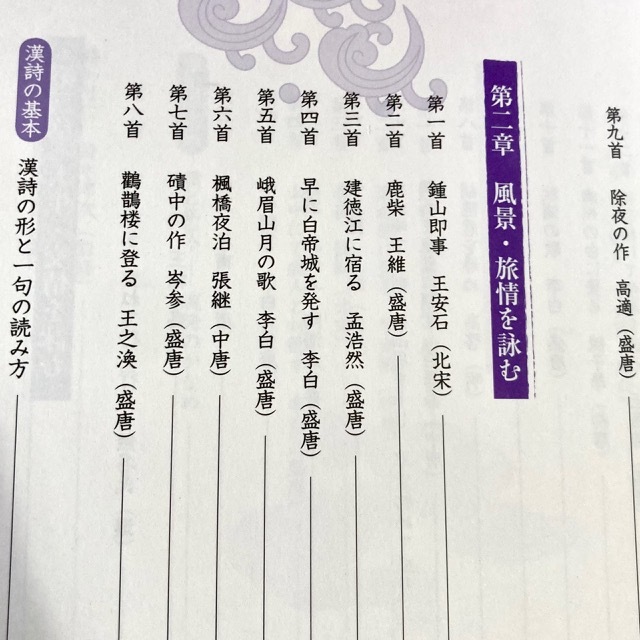 第九首 除夜の作 高適（盛唐）
第二章 風景・旅情を詠む
第一首 鍾山即事 王安石（北宋）
第二首 鹿柴 王維（盛唐）
第三首 建徳江に宿る 孟浩然（盛唐）
第四首 早に白帝城を発す 李白（盛唐）
第五首 峨眉山月の歌 李白（盛唐）
第六首 楓橋夜泊 張継（中唐）
第七首 磧中の作 岑参（盛唐）
第八首 鸛鵲楼に登る 王之渙（盛唐）
漢詩の基本 漢詩の形と一句の読み方